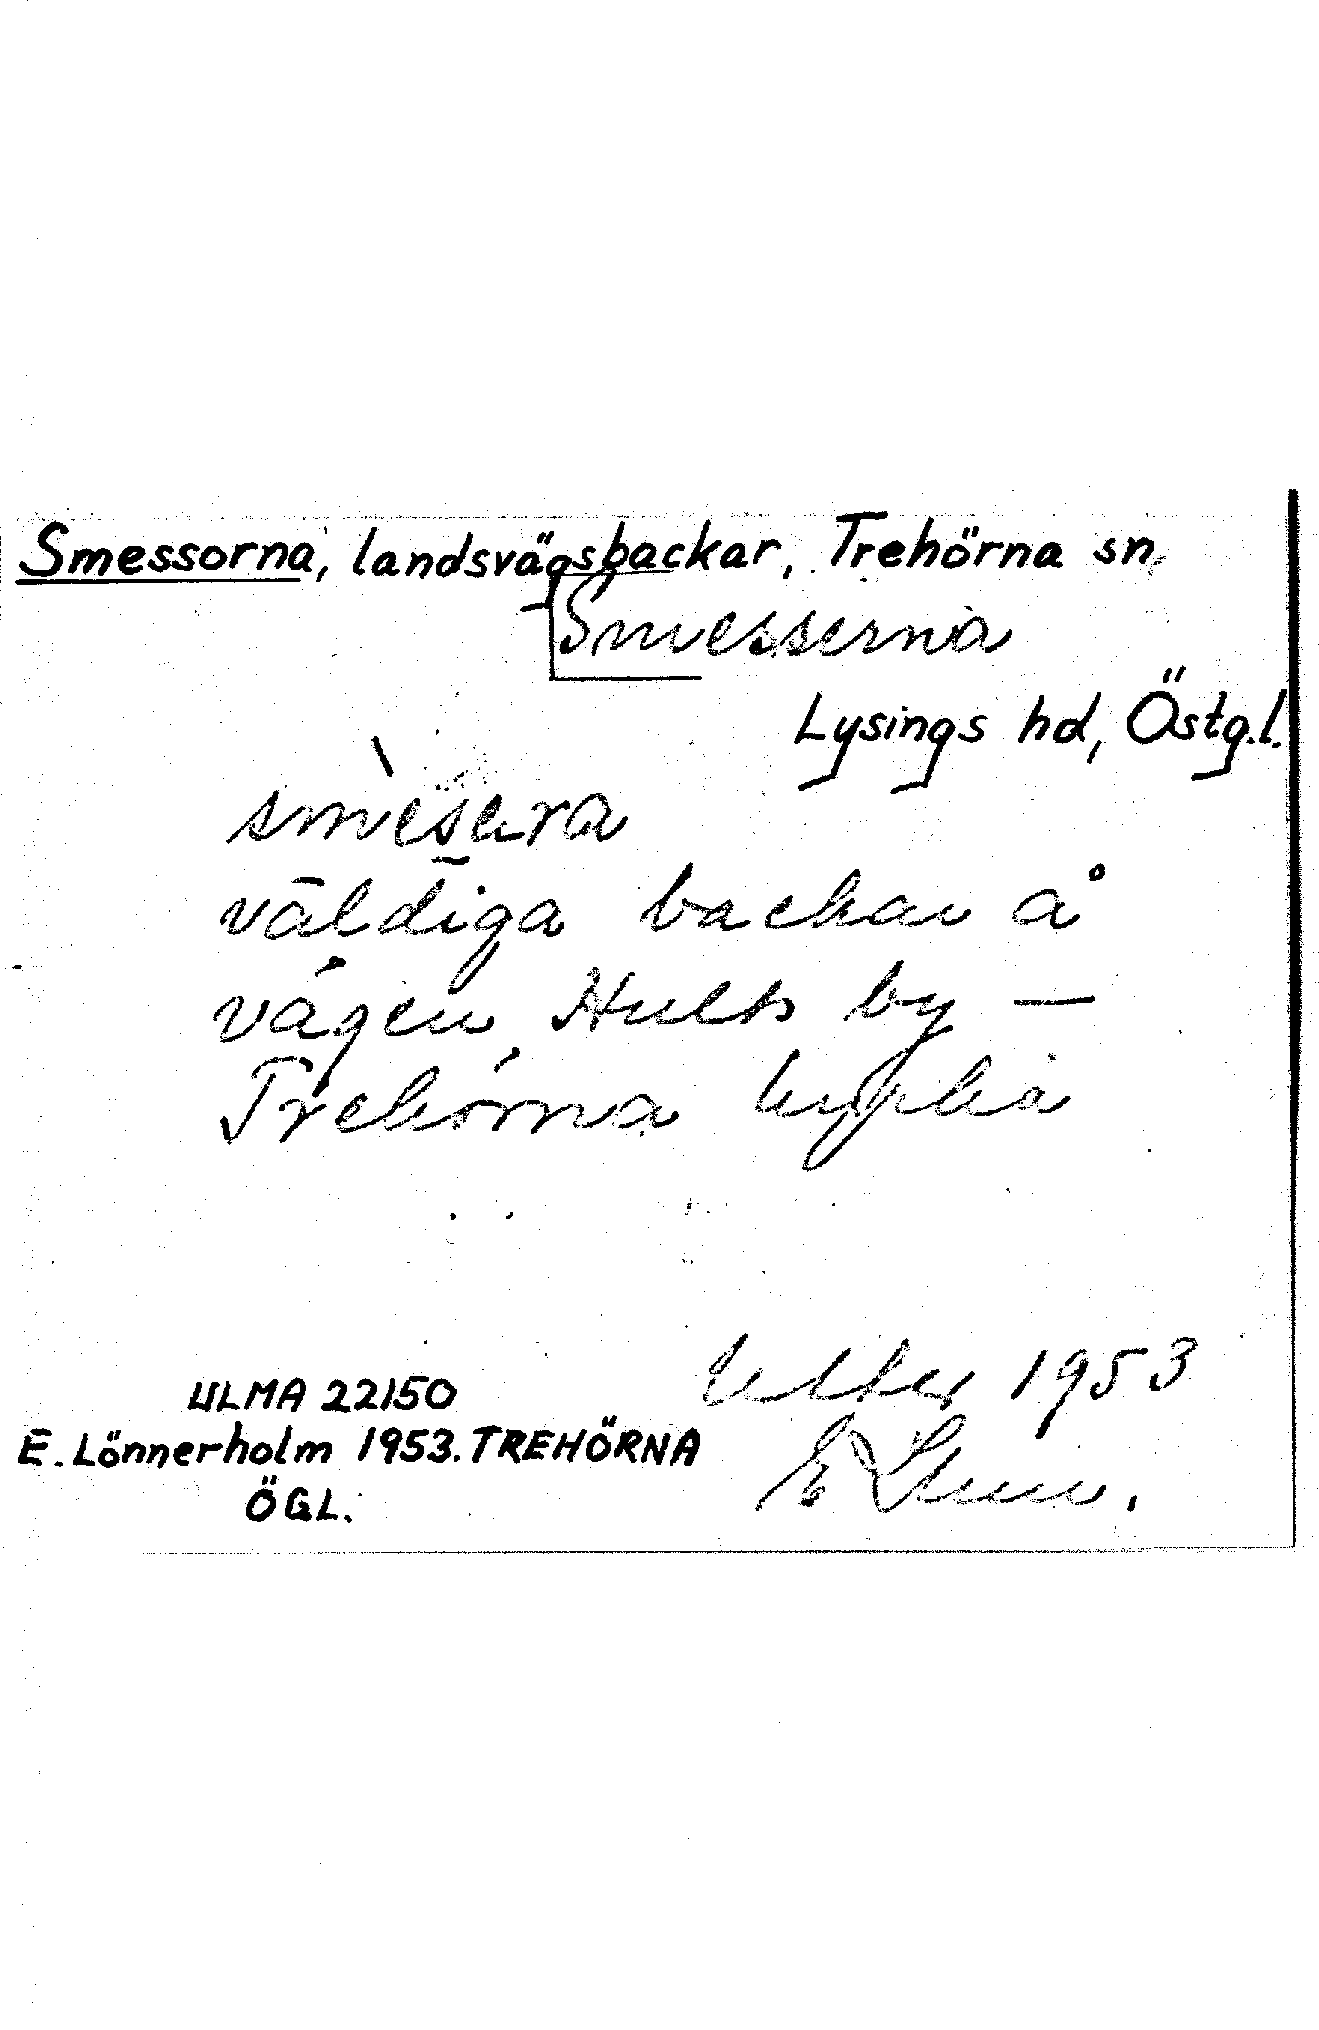 Smessorna, landsvägsbackar, Trehörna sn
Smesserna
Lysings hd, Östg.l.
smèsera
väldiga backar å
vägen Hults by —
Trehörna kyrka
ULMA 22150
E. Lönnerholm 1953. TREHÖRNA
ÖGL.
1953
E